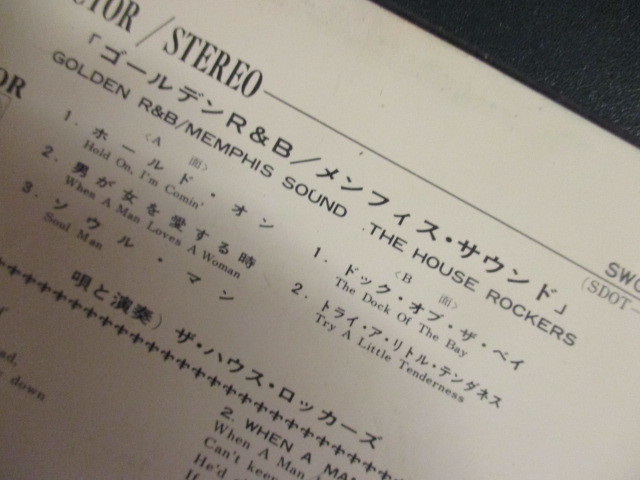 STEREO
「ゴールデンR&B/メンフィス・サウンド」
GOLDEN R&B/MEMPHIS SOUND .THE HOUSE ROCKERS
SWG
(SDOT—
〈A 面〉
1. ホールド・オン
Hold On, I'm Comin'
2. 男が女を愛する時
When A Man Loves A Woman
3. ソウル・マン
Soul Man
〈B 面〉
1. ドック・オブ・ザ・ベイ
The Dock Of The Bay
2. トライ・ア・リトル・テンダネス
Try A Little Tenderness
唄と演奏) ザ・ハウス・ロッカーズ
down
2. WHEN A MA
When A Man
Can't keep
He'd